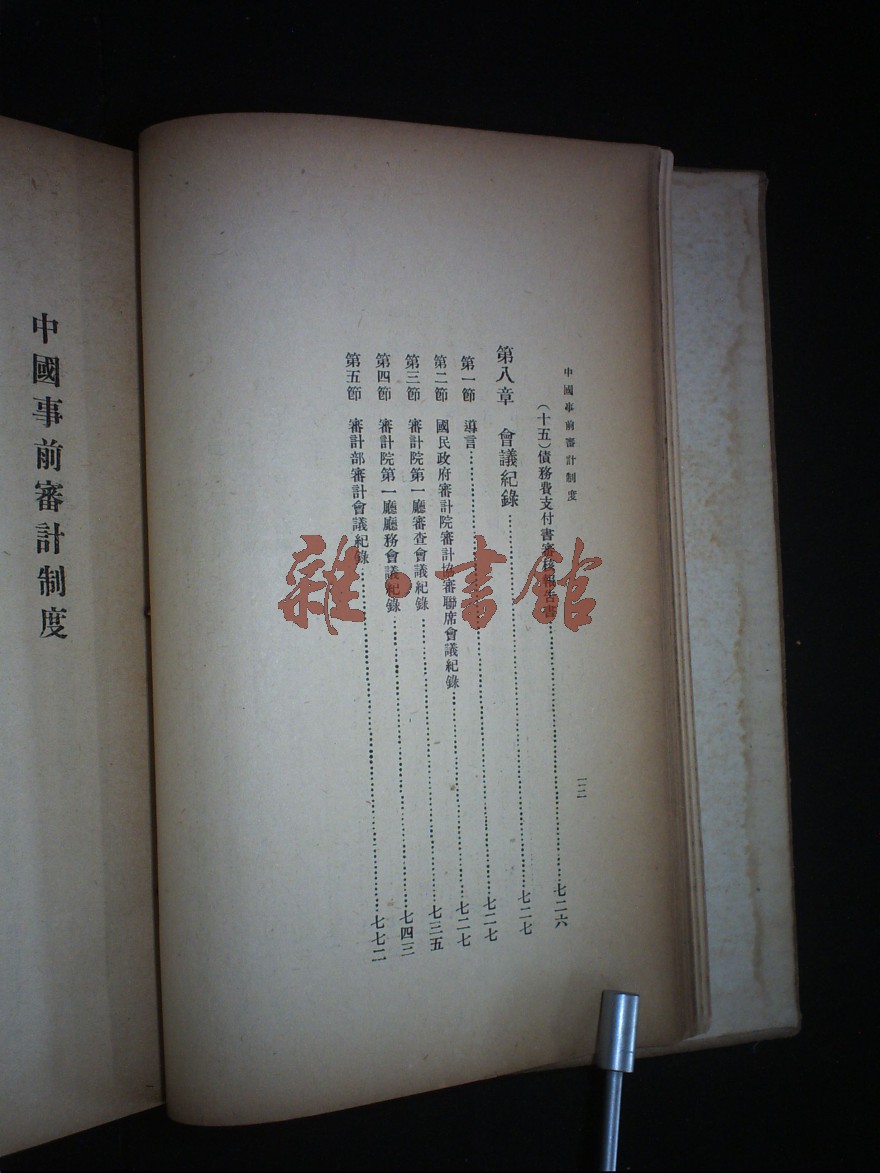 中國事前審計制度
一二
(十五)債務費支付書審核報告書……七二六
第八章 會議紀錄……七二七
第一節 導言……七二七
第二節 國民政府審計院審計協審聯席會議紀錄……七二七
第三節 審計院第一廳審查會議紀錄……七三五
第四節 審計院第一廳廳務會議紀錄……七四三
第五節 審計部審計會議紀錄……七七二
中國事前審計制度
雜·書館